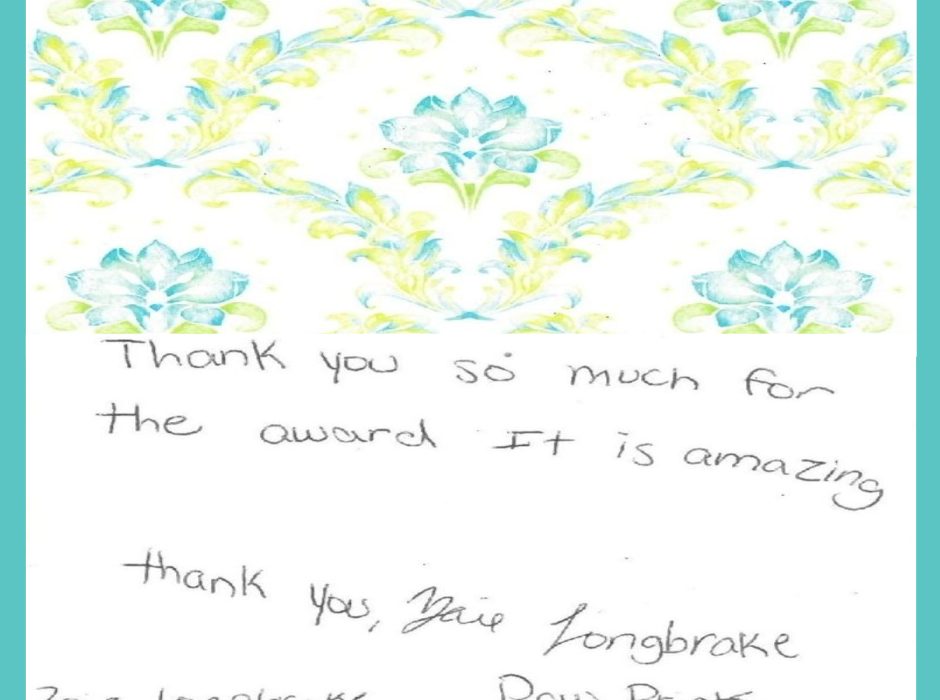 Thank you so much for
the award It is amazing
thank you, Zaie Longbrake